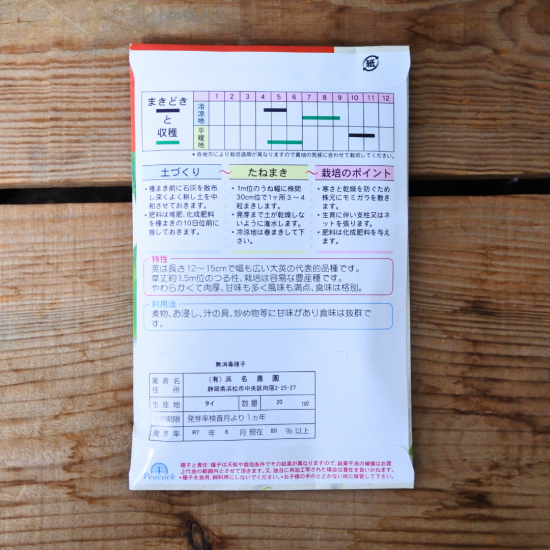 紙
1 2 3 4 5 6 7 8 9 10 11 12
まきどき
と
収穫
冷涼地
平暖地
●各地方により栽培適期が異なりますので貴地の気候に合わせて栽培してください。
土づくり ～ たねまき ～ 栽培のポイント
●種まき前に石灰を散布
し深くよく耕し土を中
和させておきます。
●肥料は堆肥、化成肥料
を種まきの10日位前に
施しておきます。
●1m位のうね幅に株間
30cm位で1ヶ所3～4
粒まきします。
●発芽まで土が乾燥しな
いように潅水します。
●冷涼地は春まきして下
さい。
●寒さと乾燥を防ぐため
株元にモミガラを敷き
ます。
●生育に伴い支柱又はネ
ットを張ります。
●肥料は化成肥料を与え
ます。
特性
莢は長さ12～15cmで幅も広い大莢の代表的品種です。
草丈約1.5m位のつる性、栽培は容易な豊産種です。
やわらかくて肉厚、甘味も多く風味も満点、食味は格別。
利用法
煮物、お浸し、汁の具、炒め物等に甘味があり食味は抜群で
す。
無消毒種子
業者名 (有)浜名農園
住所 静岡県浜松市中央区向宿2-25-27
生産地 タイ 数量 20 ml
期限 発芽率検査月より1ヵ年
発芽率 R7 年 6 月現在 80 %以上
Peacock
種子と責任・種子は天候や栽培条件でその結果が異なりますので、結果不良の補償はお買
上代金の範囲内とさせて頂きます。又、独自に再加工等された場合は責任を負いかねます。
●種子を食用、飼料用にしないでください。●お子様の手のとどかない所に保管して下さい。